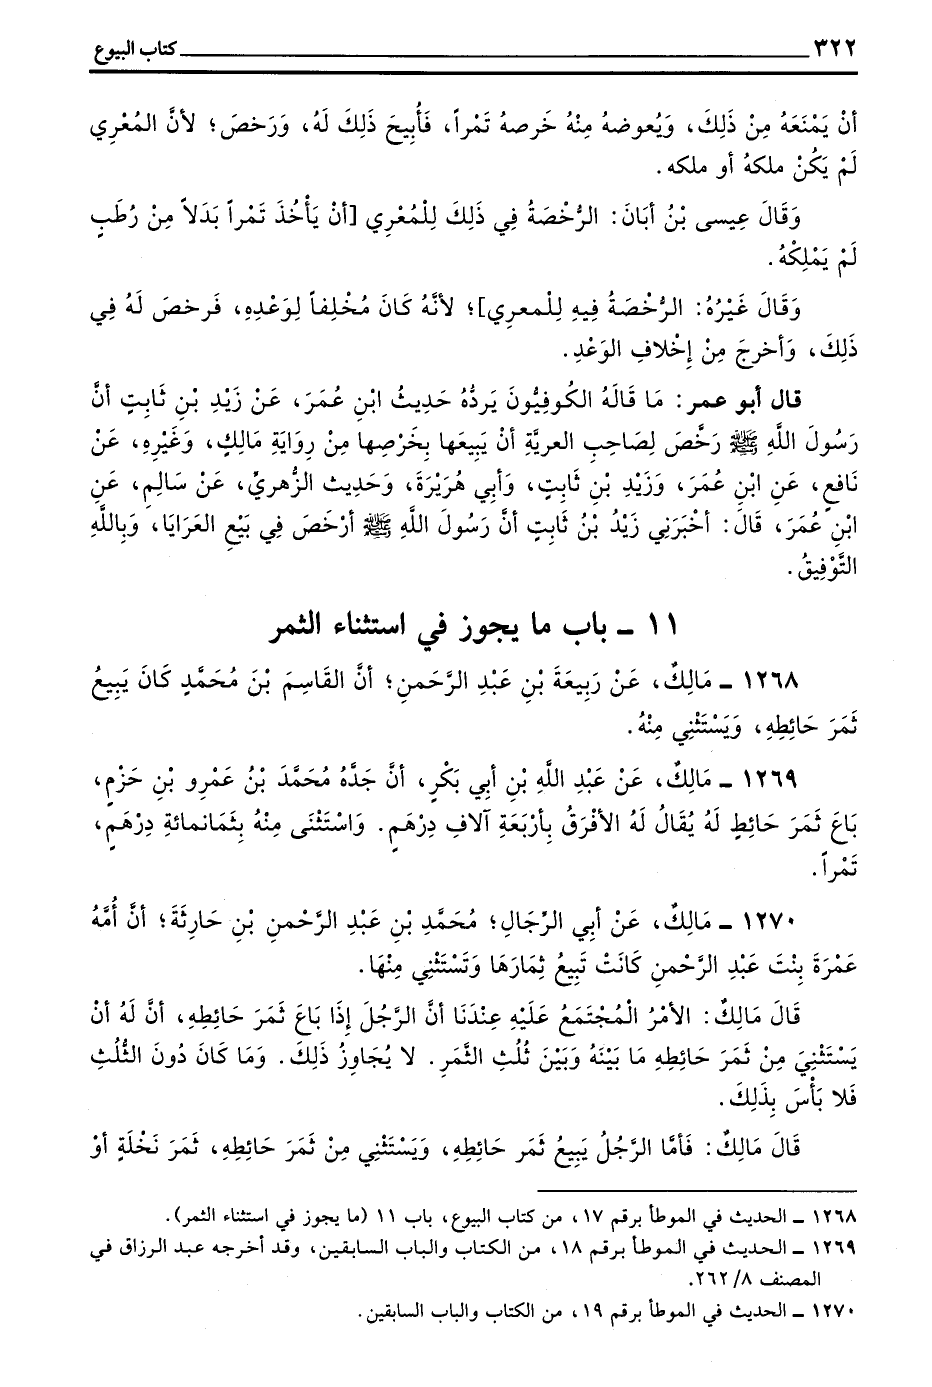 ٣٢٢ كتاب البيوع
أنْ يَمْنَعَهُ مِنْ ذَلِكَ، وَيُعوضهُ مِنْهُ خَرصهُ تَمْراً، فَأُبِيحَ ذَلِكَ لَهُ، وَرَخصَ؛ لأنَّ المُعْرِي
لَمْ يَكُنْ ملكهُ أو ملكه.
وَقَالَ عِيسى بْنُ أبَانَ: الرُّخْصَةُ فِي ذَلِكَ لِلْمُعْرِي [أنْ يَأْخُذَ تَمْراً بَدَلاً مِنْ رُطَبٍ
لَمْ يَمْلِكْهُ.
وَقَالَ غَيْرُهُ: الرُّخْصَةُ فِيهِ لِلْمعرِي]؛ لأنَّهُ كَانَ مُخْلِفاً لِوَعْدِهِ، فَرخصَ لَهُ فِي
ذَلِكَ، وَأخرجَ مِنْ إخْلافِ الوَعْدِ.
قال أبو عمر: مَا قَالَهُ الكُوفِيُّونَ يَردُّهُ حَدِيثُ ابْنِ عُمَرَ، عَنْ زَيْدِ بْنِ ثَابِتٍ أنَّ
رَسُولَ اللَّهِ ﷺ رَخَّصَ لِصَاحِبِ العريَّةِ أنْ يَبِيعَها بِخَرْصِها مِنْ رِوَايَةِ مَالِكٍ، وَغَيْرِهِ، عَنْ
نَافعٍ، عَنِ ابْنِ عُمَرَ، وَزَيْدِ بْنِ ثَابِتٍ، وَأبِي هُرَيْرَةَ، وَحَدِيث الزُّهريِّ، عَنْ سَالِمٍ، عَنِ
ابْنِ عُمَرَ، قَالَ: أخْبَرَنِي زَيْدُ بْنُ ثَابِتٍ أنَّ رَسُولَ اللَّهِ ﷺ أرْخَصَ فِي بَيْعِ العَرَايَا، وَبِاللَّهِ
التَّوْفِيقُ.
١١ ـ باب ما يجوز في استثناء الثمر
١٢٦٨ ـ مَالِكٌ، عَنْ رَبِيعَةَ بْنِ عَبْدِ الرَّحَمنِ؛ أنَّ القَاسِمَ بْنَ مُحَمَّدٍ كَانَ يَبِيعُ
ثَمَرَ حَائِطِهِ، وَيَسْتَثْنِي مِنْهُ.
١٢٦٩ ـ مَالِكٌ، عَنْ عَبْدِ اللَّهِ بْنِ أبِي بَكْرٍ، أنَّ جَدَّهُ مُحَمَّدَ بْنُ عَمْرِو بْنِ حَزْمٍ،
بَاعَ ثَمَرَ حَائِطٍ لَهُ يُقَالُ لَهُ الأفْرَقُ بِأرْبَعَةِ آلافِ دِرْهَمٍ. وَاسْتَثْنَى مِنْهُ بِثَمَانمائةِ دِرْهَمٍ،
تَمْراً.
١٢٧٠ ـ مَالِكٌ، عَنْ أبِي الرِّجَالِ؛ مُحَمَّدِ بْنِ عَبْدِ الرَّحْمنِ بْنِ حَارِثَةَ؛ أنَّ أُمَّهُ
عَمْرَةَ بِنْتَ عَبْدِ الرَّحْمنِ كَانَتْ تَبِيعُ ثِمَارَهَا وَتَسْتَثْنِي مِنْهَا.
قَالَ مَالِكٌ: الأمْرُ الْمُجْتَمَعُ عَلَيْهِ عِنْدَنَا أنَّ الرَّجُلَ إذَا بَاعَ ثَمَرَ حَائِطِهِ، أنَّ لَهُ أنْ
يَسْتَثْنِيَ مِنْ ثَمَرِ حَائِطِهِ مَا بَيْنَهُ وَبَيْنَ ثُلُثِ الثَّمَرِ. لا يُجَاوِزُ ذَلِكَ. وَمَا كَانَ دُونَ الثُّلُثِ
فَلا بَأْسَ بِذَلِكَ.
قَالَ مَالِكٌ: فَأمَّا الرَّجُلُ يَبِيعُ ثَمَر حَائِطِهِ، وَيَسْتَثْنِي مِنْ ثَمَرَ حَائِطِهِ، ثَمَرَ نَخْلَةٍ أوْ
١٢٦٨ ـ الحديث في الموطأ برقم ١٧، من كتاب البيوع، باب ١١ (ما يجوز في استثناء الثمر).
١٢٦٩ ـ الحديث في الموطأ برقم ١٨، من الكتاب والباب السابقين، وقد أخرجه عبد الرزاق في
المصنف ٨/ ٢٦٢.
١٢٧٠ ـ الحديث في الموطأ برقم ١٩، من الكتاب والباب السابقين.